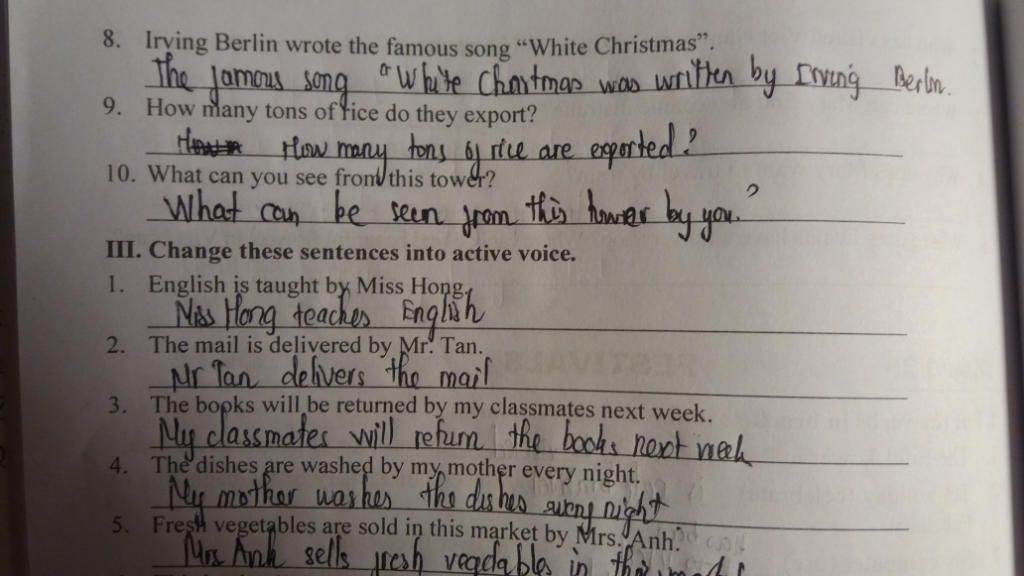 8. Irving Berlin wrote the famous song “White Christmas”.
The famous song "White Chrístmas was written by Irving Berlin.
9. How many tons of rice do they export?
How many tons of rice are exported?
10. What can you see from this tower?
What can be seen from this tower by you.?
III. Change these sentences into active voice.
1. English is taught by Miss Hong.
Miss Hong teaches English
2. The mail is delivered by Mr. Tan.
Mr Tan delivers the mail
3. The books will be returned by my classmates next week.
My classmates will return the books next week
4. The dishes are washed by my mother every night.
My mother washes the dishes every night
5. Fresh vegetables are sold in this market by Mrs. Anh.
Mrs Anh sells fresh vegetables in this